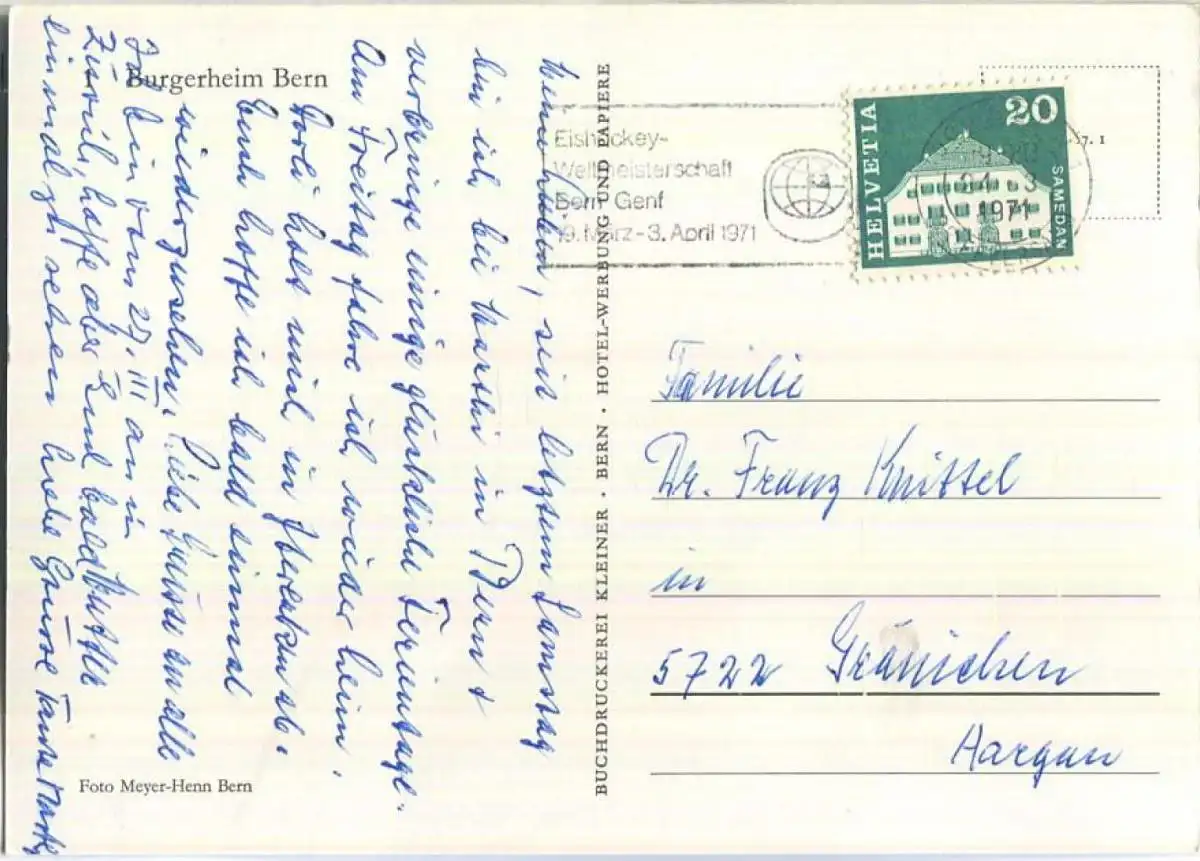 Burgerheim Bern
Meine Lieben, seit letztem Samstag
bin ich bei Martin in Bern &
verbringe einige glückliche Ferientage.
Am Freitag fahre ich wieder heim.
Dorli holt mich in ab.
Euch hoffe ich bald einmal
wiederzusehen. Liebe Grüsse an alle
Ich bin vom 27. III an in
Zürich, hoffe aber Euch bald
einmal zu sehen Liebe Grüsse Tante
Foto Meyer-Henn Bern
BUCHDRUCKEREI KLEINER · BERN · HOTEL-WERBUNG UND PAPIERE
Eishockey-
Weltmeisterschaft
Bern Genf
19. März - 3. April 1971
HELVETIA
20
SAMEDAN
1971
7. 1
Familie
Dr. Franz Knittel
in
5722 Gränichen
Aargau